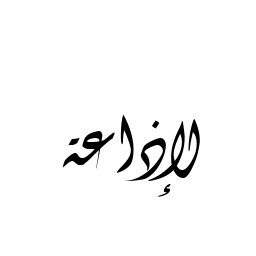 لإذاعة